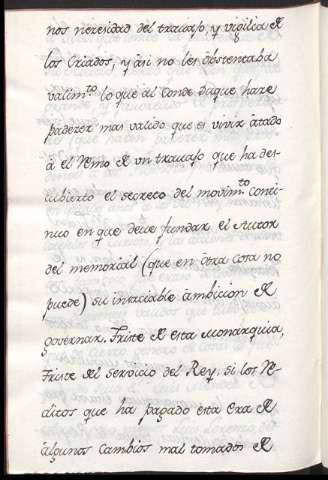 nos nezesidad del trauajo, y vigilia de
los Criados, y asi no les obstentaba
valim.to lo que al Conde Duque haze
padezer mas valido que es vivir atado
a el Remo de vn trauajo que ha des-
cubierto el secreto del movim.to conti-
nuo en que deue fundar el Autor
del memorial (que en otra cosa no
puede) su insaciable ambicion de
governar. Triste de esta Monarquia,
Triste del servicio del Rey, si los Re-
ditos que ha pagado esta Era de
algunos Cambios mal tomados de